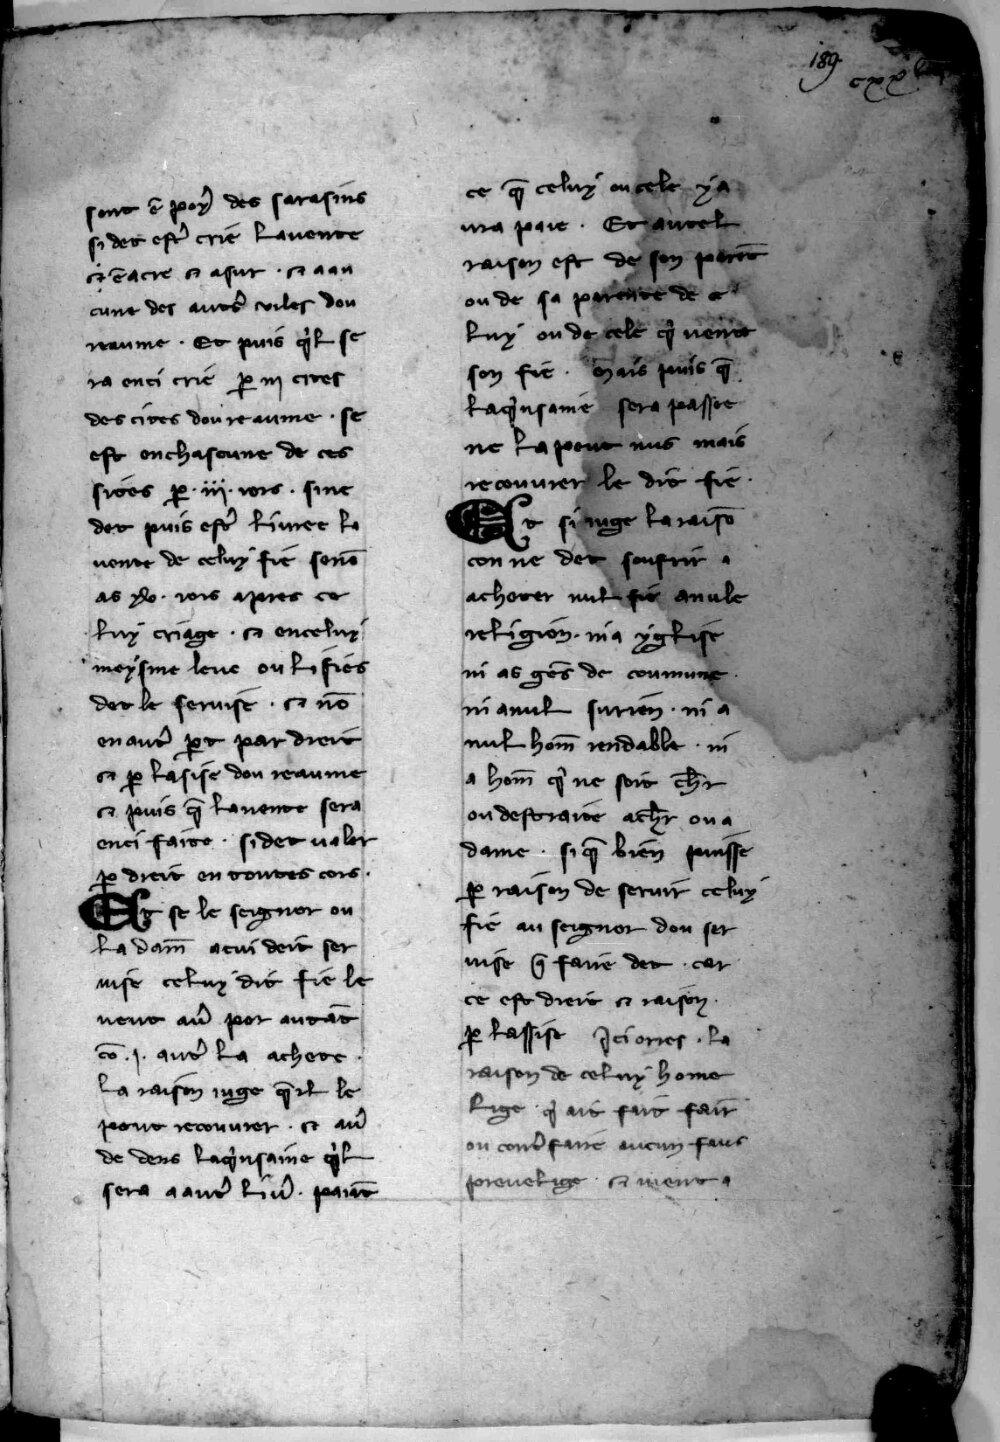 189
cxx
sont e᷄ poỹ des sarasins
si det estʾ crie lauente
⁊ e᷄ acre ⁊ asur · ⁊ a au
cune des autrʾ viles dou
reaume · Et puis q̾l se
ra enci crie ꝑ iij cites
des cites dou reaume · se
est en chascune de ces
sites ꝑ · iij · iors · si ne
det puis estʾ liuree la
uente de celuy fie seno᷄
as xv · iors apres ce
luy criage · ⁊ en celuy
meysme leue ou li fies
det le seruise · ⁊ no᷄
en autʾ ꝑt par dreit
⁊ ꝑ lasise dou reaume
⁊ puis q̄ lauente sera
enci faite · si det ualer
ꝑ dreit en toutes cors ·
Et se le seignor ou
la dam̄ a cui deit ser
uise celuy dit fie le
veut auʾ por auta᷄t
co᷄ · j · autʾ la achete ·
la raison iuge q̄ il le
peut recouurer · ⁊ auʾ
de dens laq̾nsaine q̾l
sera a autʾ liuʾ · paia᷄t
ce q̄ celuy ou cele y a
ura paie · Et autel
raison est de son pare᷄t
ou de sa parente de ce
luy ou de cele q̾ vent
son fie · Mais puis q̄
laq̾nsaine sera passee
ne la peut nus mais
recouurer le dit fie ·
Et si iuge la raiso᷄
con ne det soufrir a
acheter nul fie a nule
religion · ni a yglise
ni as ge᷄s de coumune ·
ni a nul surien · ni a
nul hom̄ rendable · ni
a hom̄ q̾ ne soit ch̄r
ou destraite a ch̄r ou a
dame · si q̄ bien puisse
ꝑ raison de seruir celuy
fie au seignor dou ser
uise q̄ faire det · car
ce est dreit ⁊ raison ·
ꝑ lassise Ici orres · la
raison de celuy home
lige q̾ ait fait faire
ou contʾfaire aucun faus
preuelige · ⁊ ment a